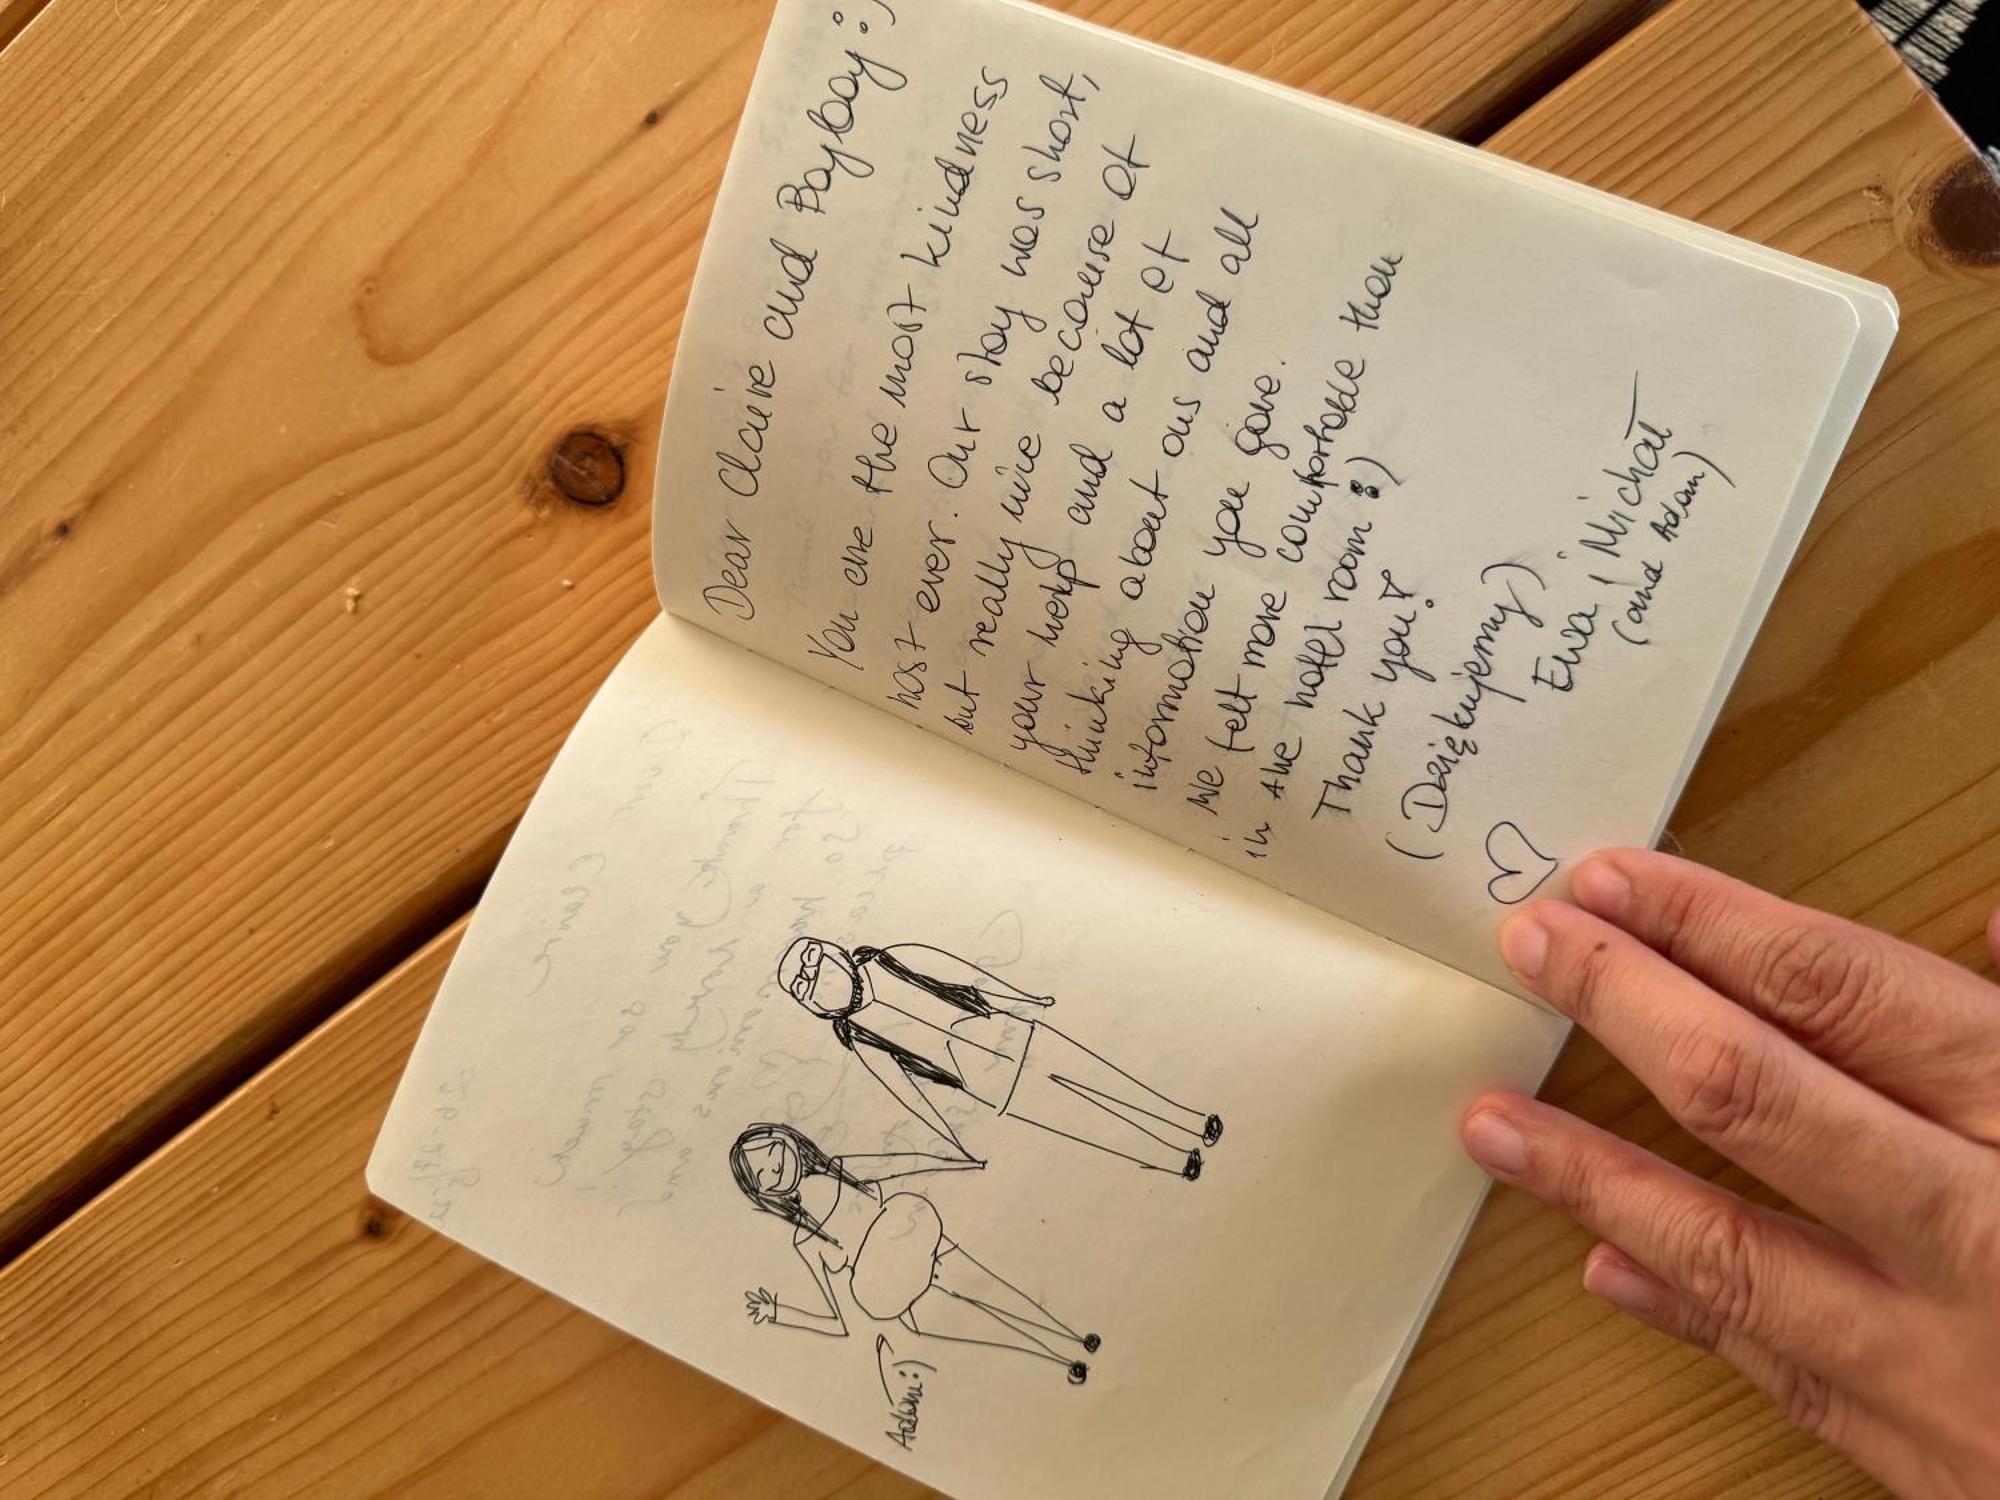 Dear Claire and Bayboy :)
You are the most kindness
host ever. Our stay was short,
but really nice because of
your help and a lot of
thinking about ous and all
information you gave.
We felt more comfortable then
in the hotel room :)
Thank you!
(Dziękujemy)
Ewa i Michał
(and Adam)
Adam :)